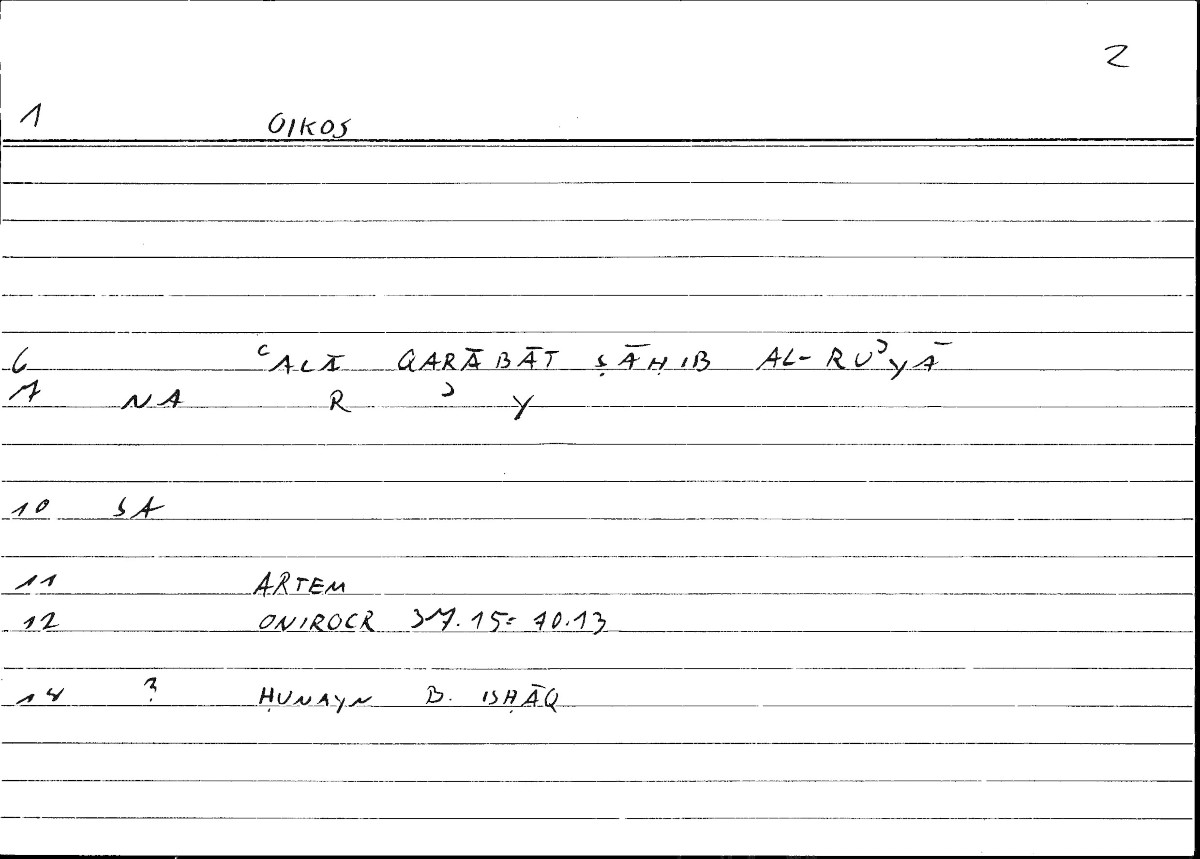 2
1 OIKOS
6 ʿALĀ QARĀBĀT ṢĀḤIB AL-RUʾYĀ
7 NA R ʾ Y
10 SA
11 ARTEM
12 ONIROCR 37.15= 70.13
14 ? ḤUNAYN B. ISḤĀQ